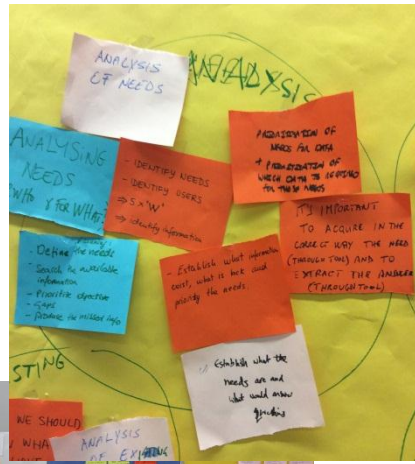 ANALYSIS
ANALYSIS
OF NEEDS
ANALYSING
NEEDS
WHO & FOR WHAT
- IDENTIFY NEEDS
- IDENTIFY USERS
⇒ 5 x "W"
⇒ identify information
PRIORITIZATION OF
NEEDS FOR DATA
+ PRIORITIZATION OF
WHICH DATA IS
FOR THESE NEEDS
IT'S IMPORTANT
TO ACQUIRE IN THE
CORRECT WAY THE NEED
(THROUGH TOOL) AND TO
EXTRACT THE ANSWER
(THROUGH TOOL)
- Define the needs
- Search available
information
- Prioritise objective
- Gaps
- the info
- Establish what information
exist, what is not and
priority the needs.
Establish what the
needs are and
what would answer
questions
STING
WE SHOULD
WHA
ANALYSIS
OF EXISTING